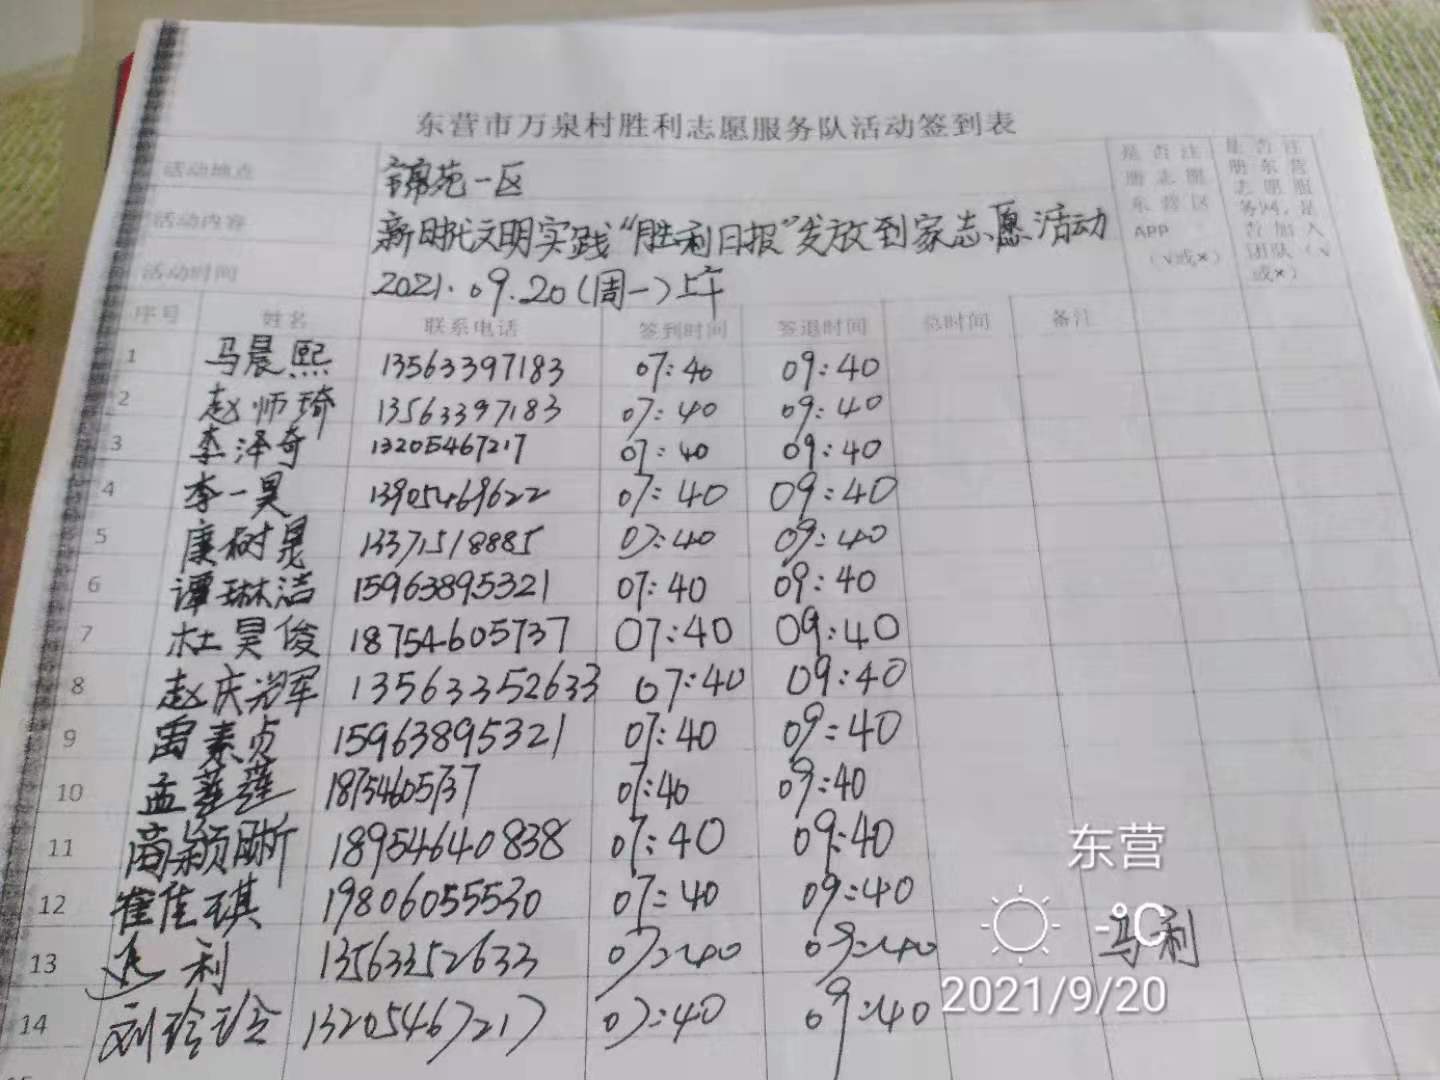 东营市万泉村胜利志愿服务队活动签到表
活动地点 锦苑一区
活动内容 新时代文明实践“胜利日报”发放到家志愿活动
活动时间 2021.09.20(周一)上午
是否注册志愿东营区APP（√或×）
是否注册东营志愿服务网，是否加入团队（√或×）
序号 姓名 联系电话 签到时间 签退时间 总时间 备注
1 马晨熙 13563397183 07:40 09:40
2 赵师琦 13563397183 07:40 09:40
3 李泽奇 13205467217 07:40 09:40
4 李一昊 13905469622 07:40 09:40
5 康树晃 13371518885 07:40 09:40
6 谭琳洁 15963895321 07:40 09:40
7 杜昊俊 18754605737 07:40 09:40
8 赵庆光军 13563352633 07:40 09:40
9 雷素贞 15963895321 07:40 09:40
10 孟莲莲 18754605737 07:40 09:40
11 高颖晰 18954640838 07:40 09:40
12 崔佳琪 19806055530 07:40 09:40
13 利 13563352633 07:40 09:40 马利
14 刘玲玲 13205467217 07:40 09:40
15
东营
-°C
2021/9/20